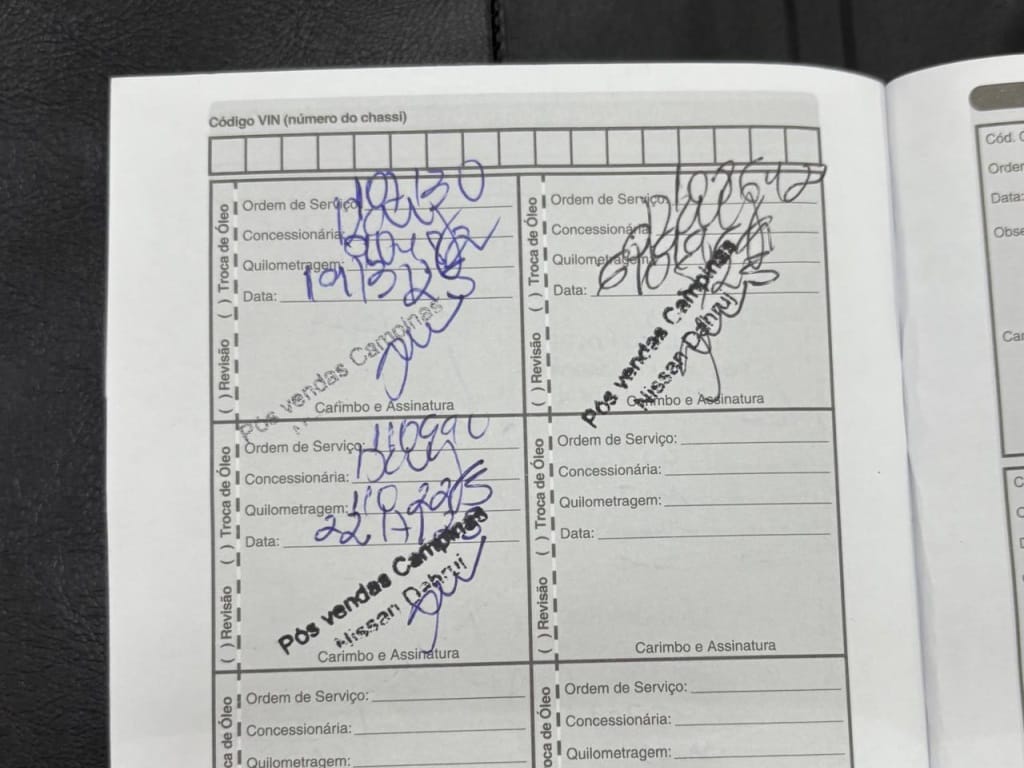 Código VIN (número do chassi)
( ) Revisão ( ) Troca de Óleo
Ordem de Serviço: 107130
Concessionária:
Quilometragem:
Data: 19/3/25
Pós vendas Campinas
Carimbo e Assinatura
( ) Revisão ( ) Troca de Óleo
Ordem de Serviço: 108642
Concessionária:
Quilometragem:
Data:
Pós vendas Campinas
Nissan Dahruj
Carimbo e Assinatura
( ) Revisão ( ) Troca de Óleo
Ordem de Serviço: 110990
Concessionária:
Quilometragem: 110.225
Data:
Pós vendas Campinas
Nissan Dahruj
Carimbo e Assinatura
( ) Revisão ( ) Troca de Óleo
Ordem de Serviço:
Concessionária:
Quilometragem:
Data:
Carimbo e Assinatura
ca de Óleo
Ordem de Serviço:
Concessionária:
Quilometragem:
oca de Óleo
Ordem de Serviço:
Concessionária:
Quilometragem:
Cód.
Data: